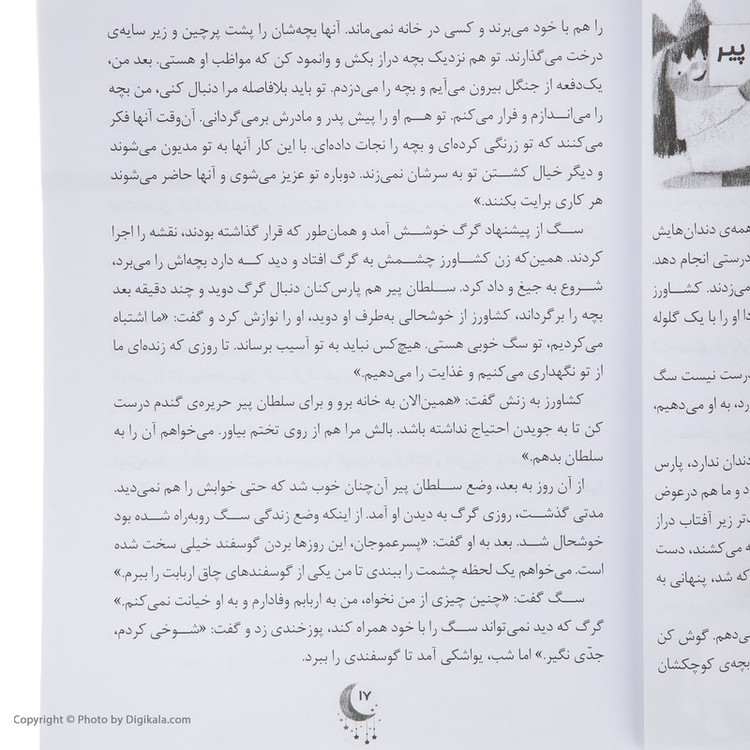 پیر
همه‌ی دندان‌هایش
درستی انجام دهد.
می‌زدند. کشاورز
دا او را با یک گلوله
درست نیست سگ
رد، به او می‌دهیم،
دندان ندارد، پارس
د و ما هم درعوض
تر زیر آفتاب دراز
ه می‌کشند، دست
که شد، پنهانی به
ی‌دهم. گوش کن
بچه‌ی کوچکشان
را هم با خود می‌برند و کسی در خانه نمی‌ماند. آنها بچه‌شان را پشت پرچین و زیر سایه‌ی
درخت می‌گذارند. تو هم نزدیک بچه دراز بکش و وانمود کن که مواظب او هستی. بعد من،
یک‌دفعه از جنگل بیرون می‌آیم و بچه را می‌دزدم. تو باید بلافاصله مرا دنبال کنی، من بچه
را می‌اندازم و فرار می‌کنم. تو هم او را پیش پدر و مادرش برمی‌گردانی. آن‌وقت آنها فکر
می‌کنند که تو زرنگی کرده‌ای و بچه را نجات داده‌ای. با این کار آنها به تو مدیون می‌شوند
و دیگر خیال کشتن تو به سرشان نمی‌زند. دوباره تو عزیز می‌شوی و آنها حاضر می‌شوند
هر کاری برایت بکنند.»
سگ از پیشنهاد گرگ خوشش آمد و همان‌طور که قرار گذاشته بودند، نقشه را اجرا
کردند. همین‌که زن کشاورز چشمش به گرگ افتاد و دید که دارد بچه‌اش را می‌برد،
شروع به جیغ و داد کرد. سلطان پیر هم پارس‌کنان دنبال گرگ دوید و چند دقیقه بعد
بچه را برگرداند، کشاورز از خوشحالی به‌طرف او دوید، او را نوازش کرد و گفت: «ما اشتباه
می‌کردیم، تو سگ خوبی هستی. هیچ‌کس نباید به تو آسیب برساند. تا روزی که زنده‌ای ما
از تو نگهداری می‌کنیم و غذایت را می‌دهیم.»
کشاورز به زنش گفت: «همین‌الان به خانه برو و برای سلطان پیر حریره‌ی گندم درست
کن تا به جویدن احتیاج نداشته باشد. بالش مرا هم از روی تختم بیاور. می‌خواهم آن را به
سلطان بدهم.»
از آن روز به بعد، وضع سلطان پیر آن‌چنان خوب شد که حتی خوابش را هم نمی‌دید.
مدتی گذشت، روزی گرگ به دیدن او آمد. از اینکه وضع زندگی سگ روبه‌راه شده بود
خوشحال شد. بعد به او گفت: «پسرعموجان، این روزها بردن گوسفند خیلی سخت شده
است. می‌خواهم یک لحظه چشمت را ببندی تا من یکی از گوسفندهای چاق اربابت را ببرم.»
سگ گفت: «چنین چیزی از من نخواه، من به اربابم وفادارم و به او خیانت نمی‌کنم.»
گرگ که دید نمی‌تواند سگ را با خود همراه کند، پوزخندی زد و گفت: «شوخی کردم،
جدّی نگیر.» اما شب، یواشکی آمد تا گوسفندی را ببرد.
۱۷
Copyright © Photo by Digikala.com